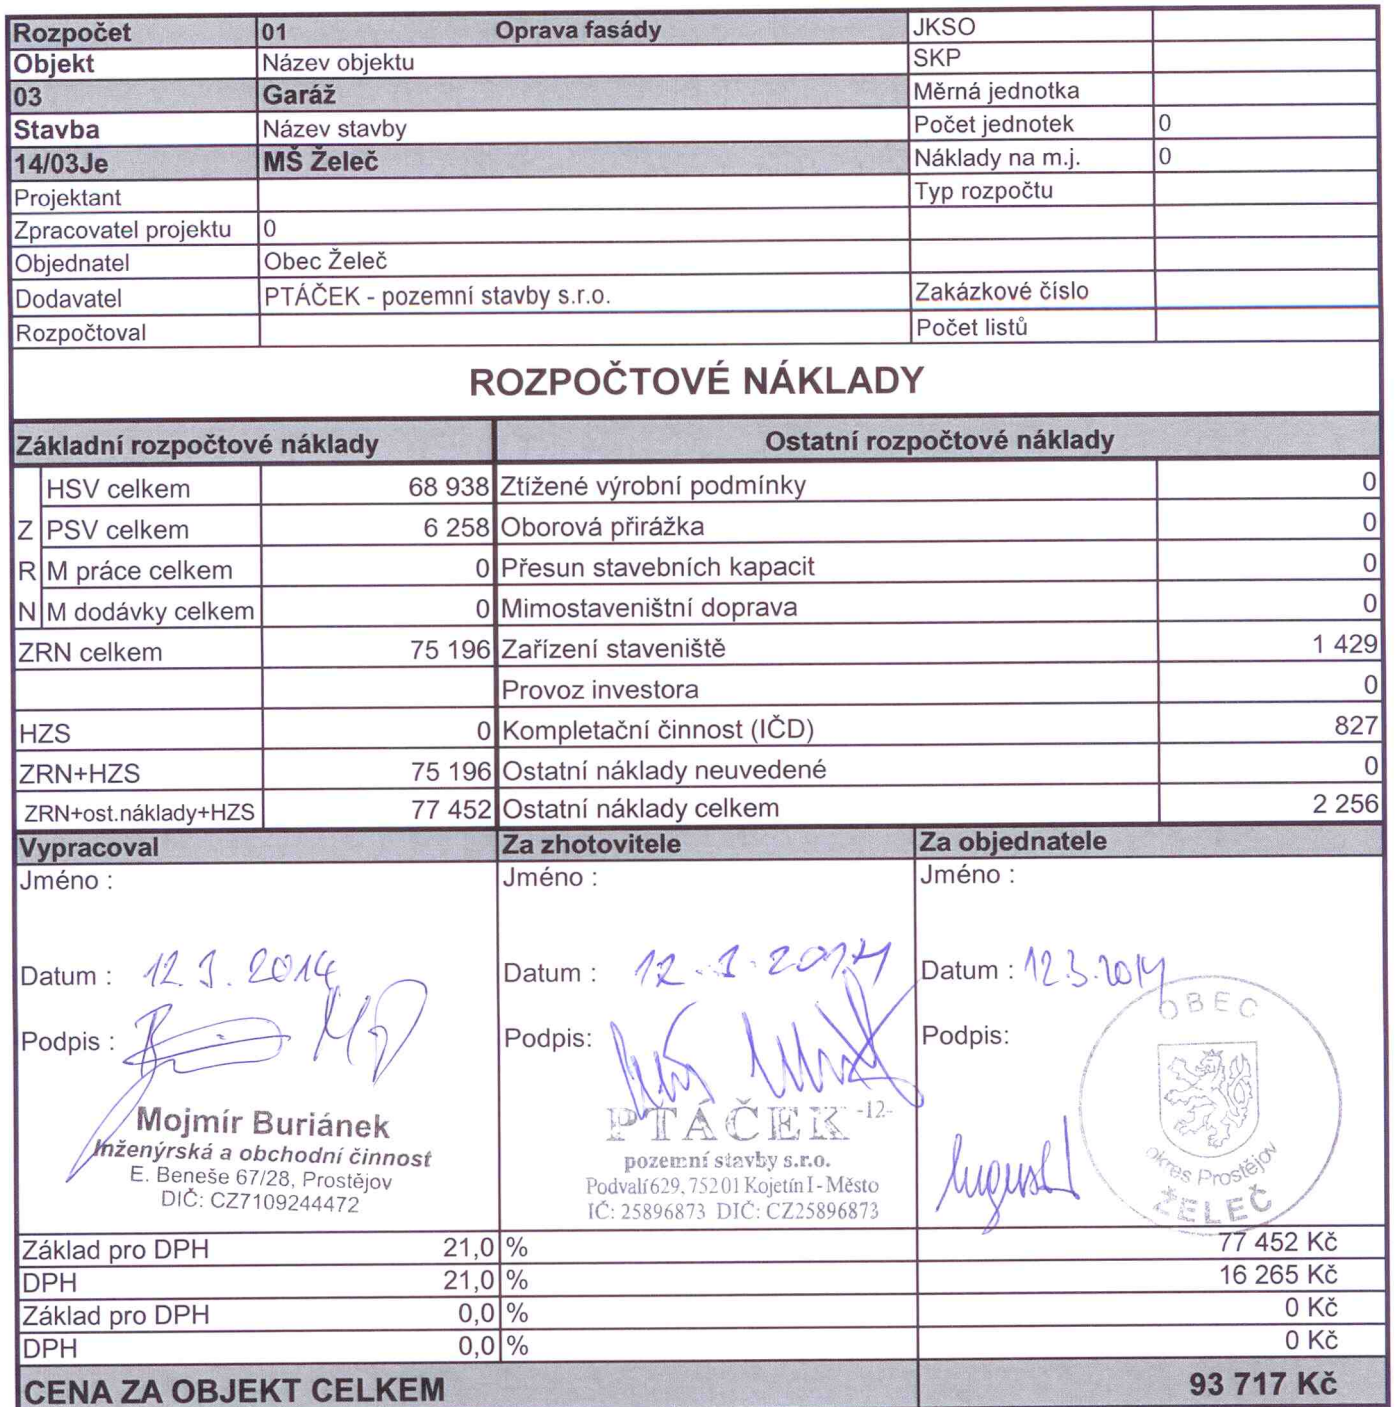 Rozpočet 01 Oprava fasády JKSO
Objekt Název objektu SKP
03 Garáž Měrná jednotka
Stavba Název stavby Počet jednotek 0
14/03Je MŠ Želeč Náklady na m.j. 0
Projektant Typ rozpočtu
Zpracovatel projektu 0
Objednatel Obec Želeč
Dodavatel PTÁČEK - pozemní stavby s.r.o. Zakázkové číslo
Rozpočtoval Počet listů
ROZPOČTOVÉ NÁKLADY
Základní rozpočtové náklady Ostatní rozpočtové náklady
HSV celkem 68 938 Ztížené výrobní podmínky 0
Z PSV celkem 6 258 Oborová přirážka 0
R M práce celkem 0 Přesun stavebních kapacit 0
N M dodávky celkem 0 Mimostaveništní doprava 0
ZRN celkem 75 196 Zařízení staveniště 1 429
Provoz investora 0
HZS 0 Kompletační činnost (IČD) 827
ZRN+HZS 75 196 Ostatní náklady neuvedené 0
ZRN+ost.náklady+HZS 77 452 Ostatní náklady celkem 2 256
Vypracoval Za zhotovitele Za objednatele
Jméno : Jméno : Jméno :
Datum : 12.3.2014 Datum : 12.3.2014 Datum : 12.3.2014
Podpis : Podpis: Podpis:
OBEC
Mojmír Buriánek
Inženýrská a obchodní činnost
E. Beneše 67/28, Prostějov
DIČ: CZ7109244472
PTÁČEK -12-
pozemní stavby s.r.o.
Podvalí 629, 752 01 Kojetín I - Město
IČ: 25896873 DIČ: CZ25896873
okres Prostějov
ŽELEČ
Základ pro DPH 21,0 % 77 452 Kč
DPH 21,0 % 16 265 Kč
Základ pro DPH 0,0 % 0 Kč
DPH 0,0 % 0 Kč
CENA ZA OBJEKT CELKEM 93 717 Kč